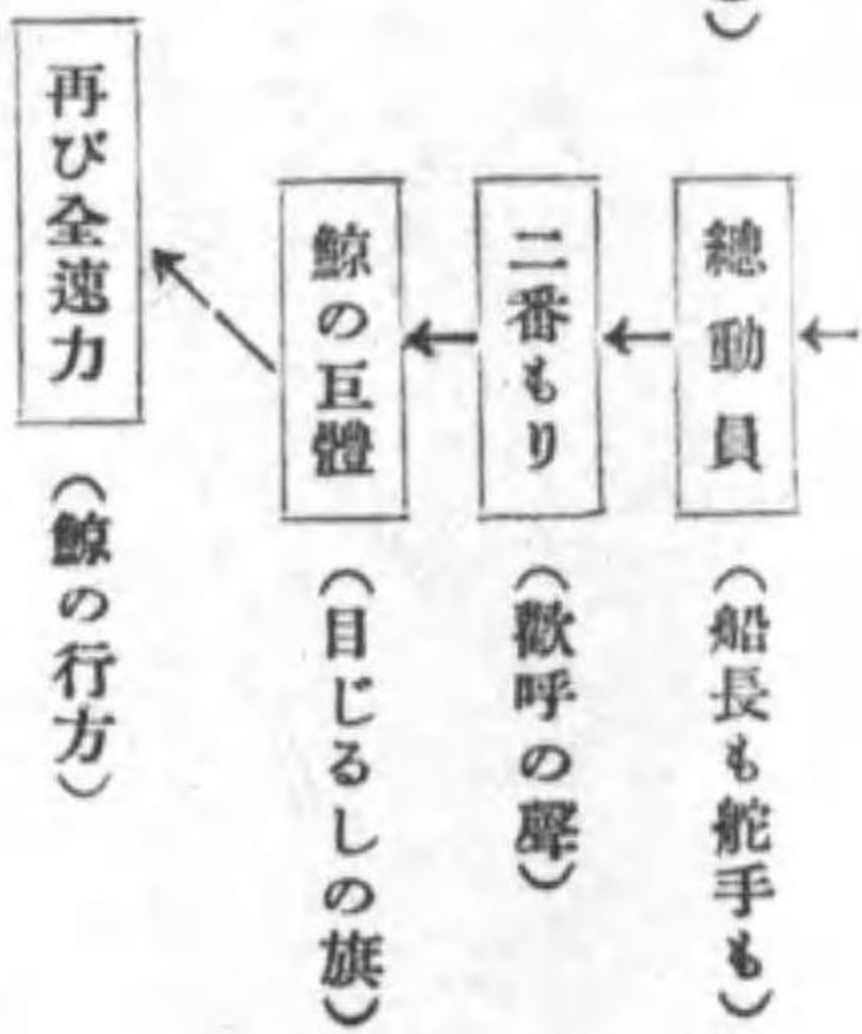 ）
總動員
（船長も舵手も）
二番もり
（歡呼の聲）
鯨の巨體
（目じるしの旗）
再び全速力
（鯨の行方）